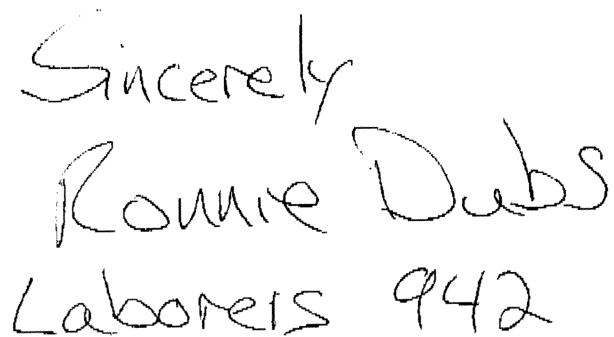 Sincerely
Ronnie Dubs
Laborers 942